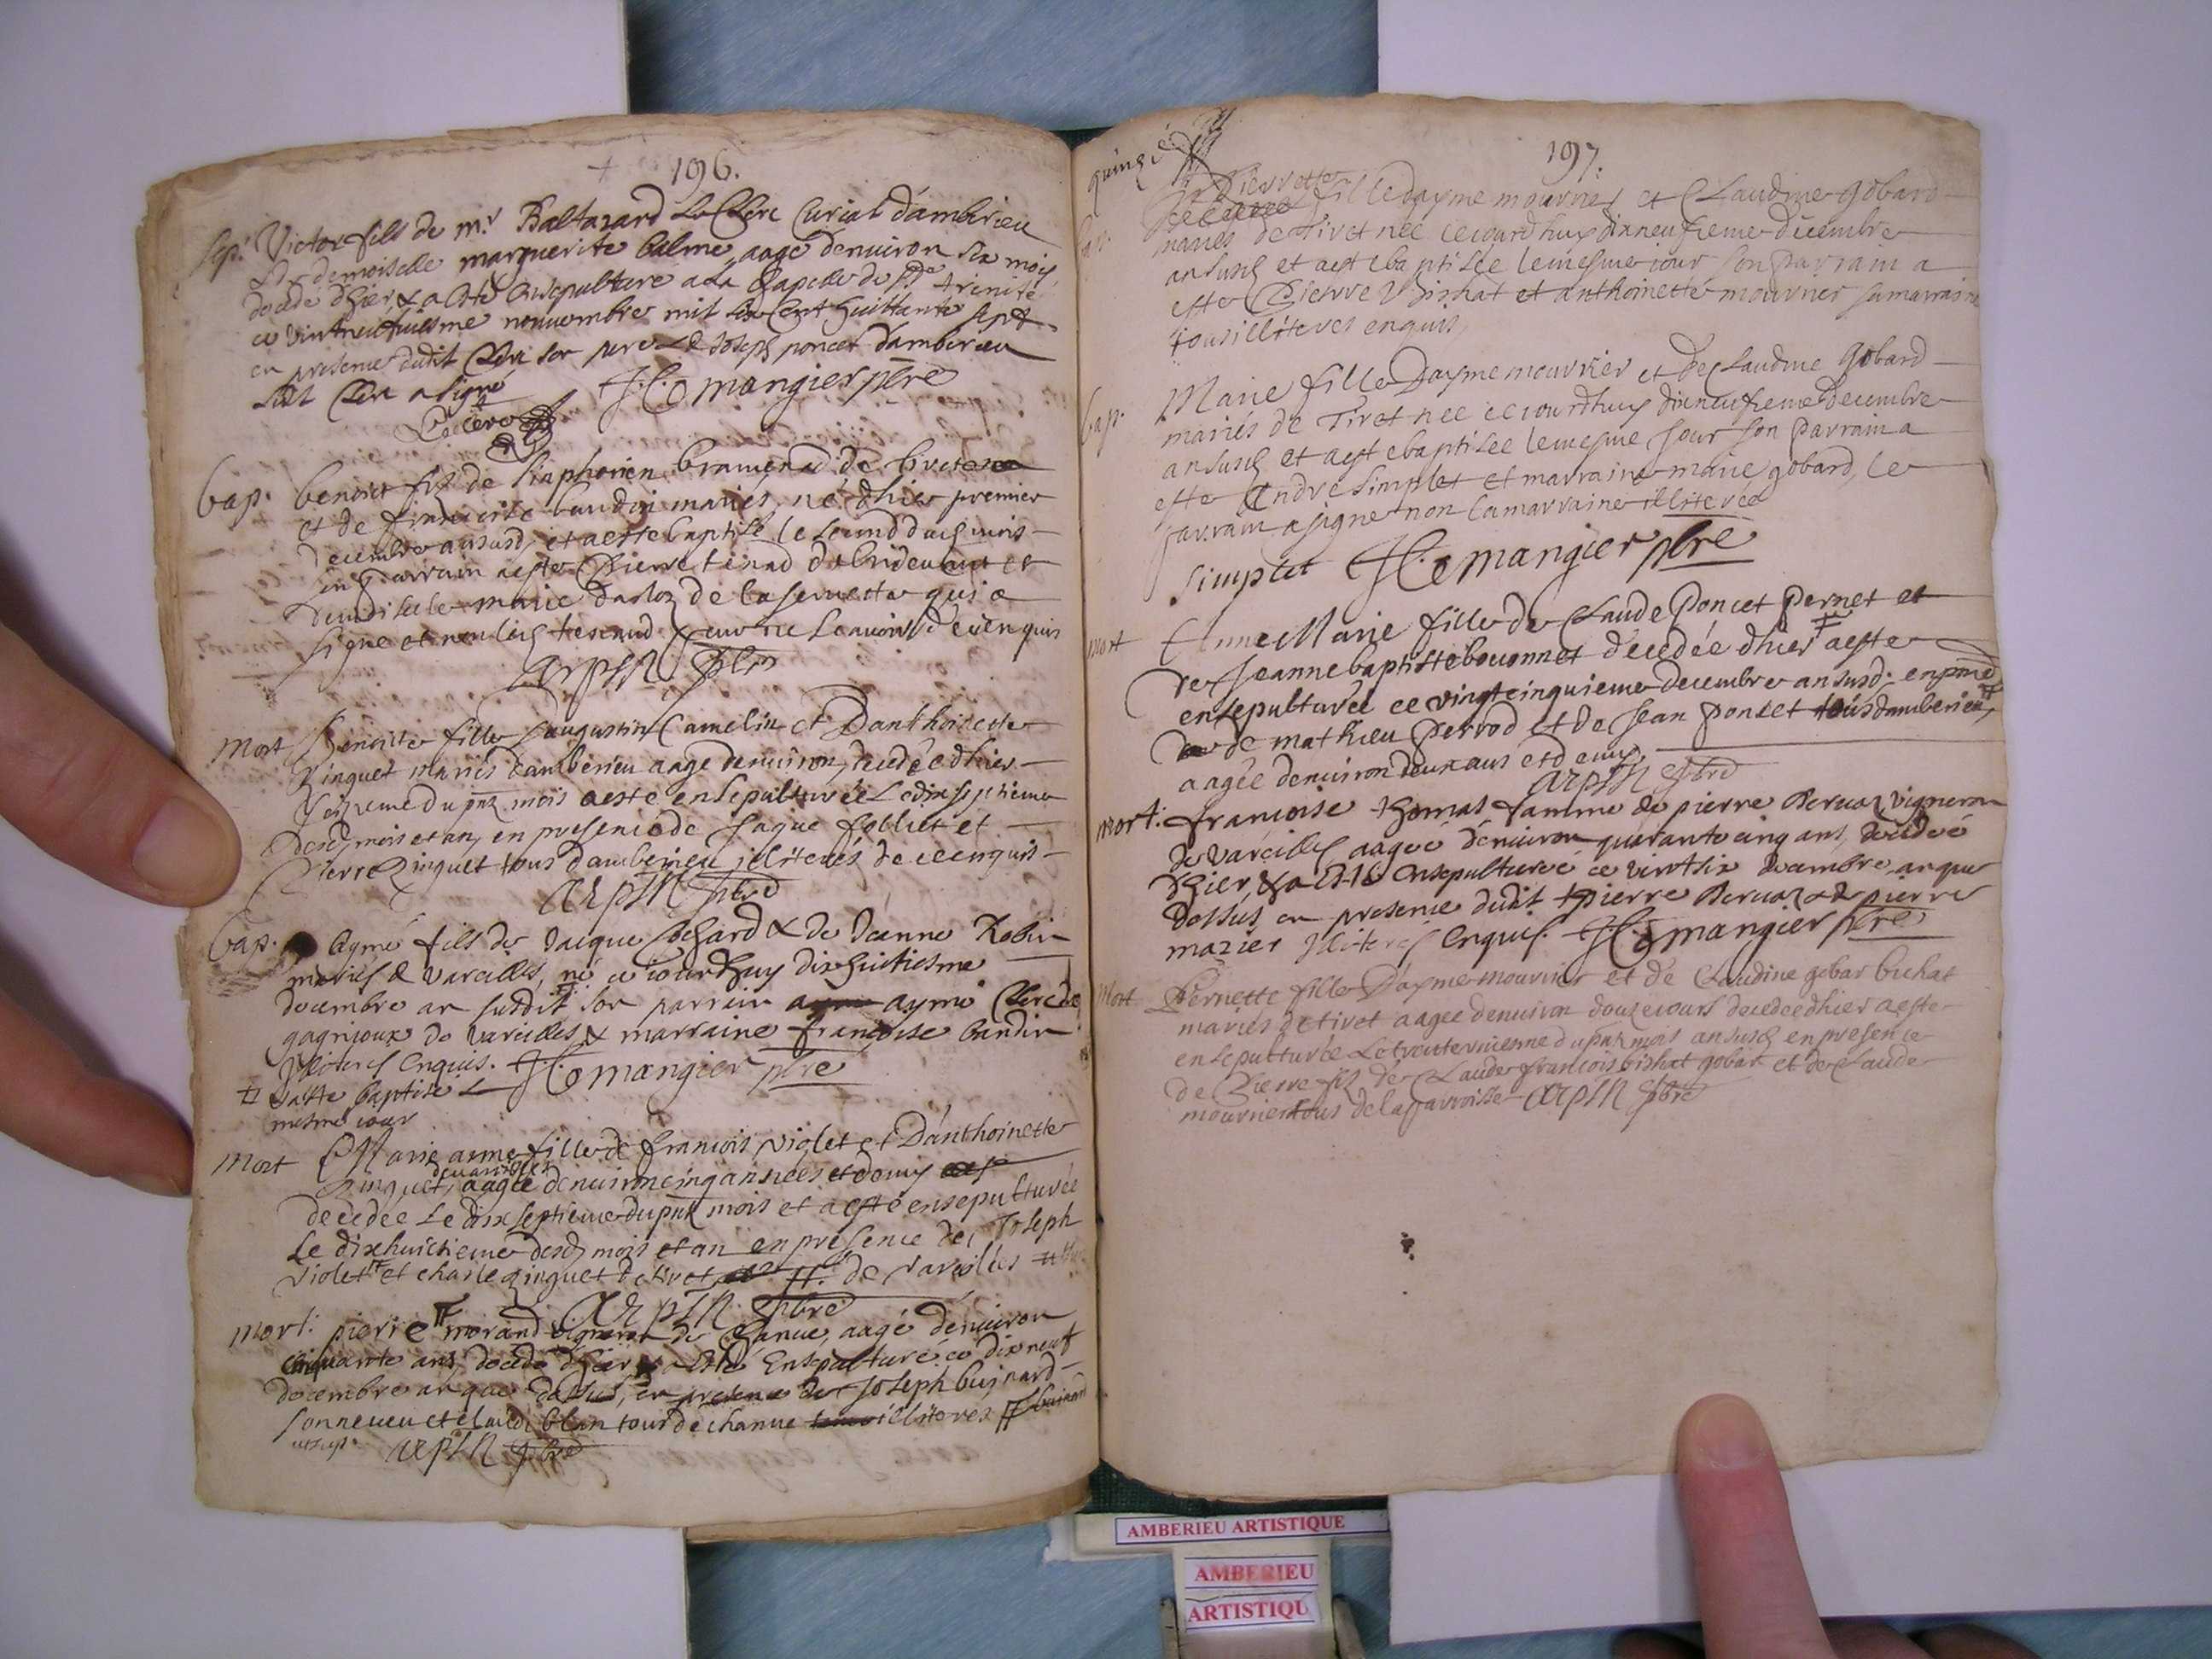 196.
sep.t Victor fils de m.r Baltazard LeClerc Curial dambérieu
& de demoiselle marguerite balme aagé denuiron six mois
décédé d'hier & a esté ensepulturé a la Chapelle de s.te trinité
ce vintneufuiesme nouuembre mil six Cent huittante sept
en presence dudit Clerc son pere & de Joseph poncet dambérieu
ledit Clerc a signé
Leclerc J. C. mangier pbre
bap. benoict filz de Sinphorien bramerad de
et de francoise baudin mariés, né d'hier premier
decembre an susd, et a esté baptisé le second dud mois
son parrain a esté Pierre tenad de et
demoiselle marie darloz de la seruette qui a
signé et non led tenand pour ne scauoir de ce enquis
arpin pbre
mort Benoite fille daugustin Camelin et Danthoinette
Zinguet mariés dambérieu aagé denuiron, decedée d'hier
seizieme du pnt mois a esté ensepulturée le dixseptieme
desd mois et an, en presence de Jaque folliet et
Pierre Zinguet tous dambérieu illiterés de ce enquis
arpin pbre
bap. Aymé fils de Jacque Cochard & de Jeanne Robin
mariés de Vareilles, né ce iourdhuy dixhuitiesme
decembre an susdit son parrein aymé Clerc de
gagnioux de vareilles & marraine françoise baudin
illiterés enquis. J. C. mangier pbre
a esté baptisé le
mesme iour
mort Marie anne fille de francois violet et Danthoinette
de vareilles
Zinguet, aagée denuiron cinq années et demy
decedée le dixseptieme du pnt mois et a esté ensepulturée
le dixhuictieme desd mois et an en presence de Joseph
violet et charle Zinguet de tiret de vareilles
arpin pbre
mort: pierre morand vigneron de Chanue, aagé denuiron
cinquante ans decedé d'hier & a esté ensepulturé ce dixneuf
decembre an que dessus, en presence de Joseph buinard
son neueu et claude blanc tour de chanue illiterés buinard
arpin pbre
197.
quinzé
Pierrette
fille daymé mournier et Claudine gobard
mariés de Tiret née cejourdhuy dixneufieme decembre
an susd et a esté baptisée le mesme iour son parrain a
esté Pierre Bishat et anthoinette mournier sa marraine
tous illiterés enquis,
bap. Marie fille Daymé mournier et de Claudine gobard
mariés de Tiret née cejourdhuy dixneufieme decembre
an susd et a esté baptisée le mesme jour son parrain a
esté André simplet et marraine marie gobard, le
parrain a signé non la marraine illiterée
Simplet J. C. mangier pbre
mort Anne Marie fille de Claude Poncet Pernet et
de Jeanne baptiste bouonnet décedée d'hier a esté
ensepulturée ce vingtcinquieme decembre an susd. en pnce
de mathieu perrod et de Jean ponset tous dambérieu,
aagée denuiron deux ans et demy,
arpin pbre
mort: françoise thomas famme de pierre Beruoz vigneron
de vareilles aagée denuiron quarante cinq ans, decedée
d'hier, & a esté ensepulturée ce vintsix decembre an que
dessus en presence dudit pierre Beruoz & de pierre
mazier illiterés enquis. J. C. mangier pbre
mort Pernette fille Daymé mournier et de Claudine gobar bichat
mariés de tiret aagée denuiron douze iours decedée d'hier a esté
ensepulturée le trente unieme du pnt mois an susd en presence
de Pierre filz de Claude francois bishat gobar et de Claude
mournier tous de la parroisse arpin pbre
AMBERIEU ARTISTIQUE
AMBERIEU
ARTISTIQU